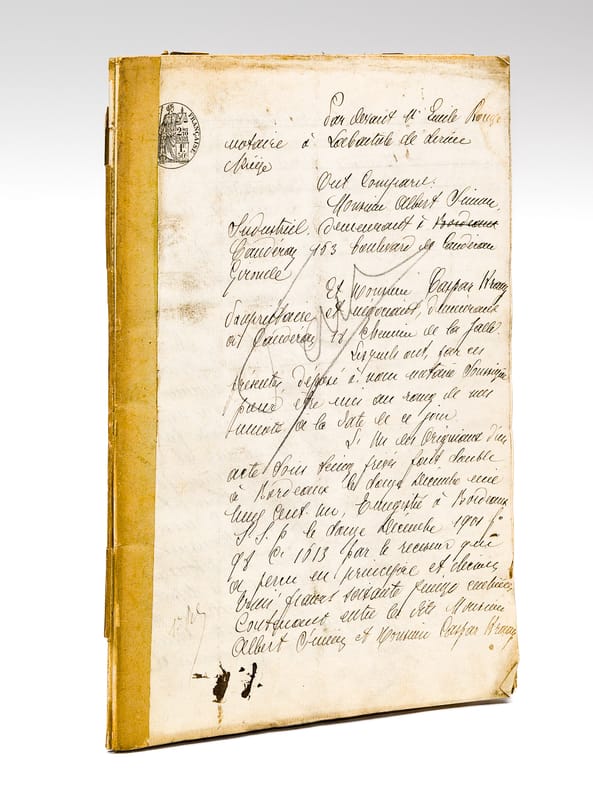 FRANÇAISE
Par devant Me Emile Rouze
notaire à Labastide de
Ariège
Ont Comparu:
Monsieur Albert Simian,
Industriel, demeurant à Bordeaux
Caudéran 153 boulevard de Caudéran
Gironde
Et Monsieur Caspar Krany
Propriétaire et négociant, demeurant
à Caudéran chemin de la
Lesquels ont, par ces
présentes déposé à nous notaire soussigné
pour être mis au rang de nos
minutes à la date de ce jour
Un des Originaux d'un
acte sous seing privé fait double
à Bordeaux le douze Décembre mil
neuf cent un, Enregistré à Bordeaux
S.S.P. le douze Décembre 1901 fo
Co 1613 par le receveur qui
a perçu en principal et décimes
trois francs soixante quinze centimes
Contenant entre les dits Monsieur
Albert Simian et Monsieur Caspar Krany